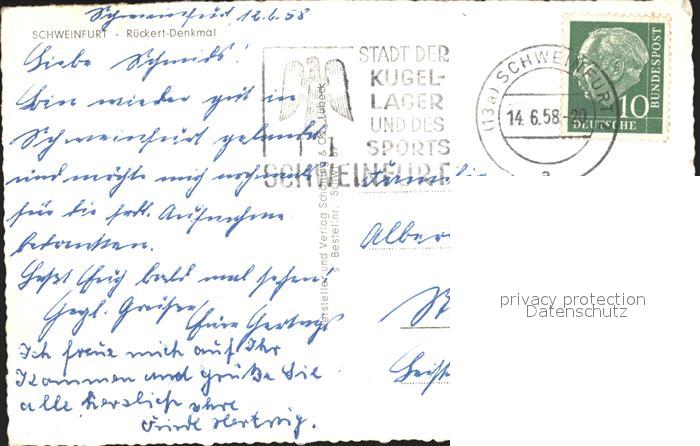 Schweinfurt, 12.6.58
SCHWEINFURT - Rückert-Denkmal
Liebe Schmids!
Bin wieder gut in
Schweinfurt gelandet
und möchte mich nochmals
für die frdl. Aufnahme
bedanken.
Laßt Euch bald mal sehen!
Herzl. Grüße
Eure Hertwigs
Ich freue mich auf Ihr
Kommen und grüße Sie
alle herzlich Ihre
Hertwig.
STADT DER
KUGEL-
LAGER
UND DES
SPORTS
SCHWEINFURT
(13a) SCHWEINFURT
14.6.58-20
a
10
DEUTSCHE
BUNDESPOST
Hersteller und Verlag Schöning & Co., Lübeck
Bestellnr.
Alber
privacy protection
Datenschutz